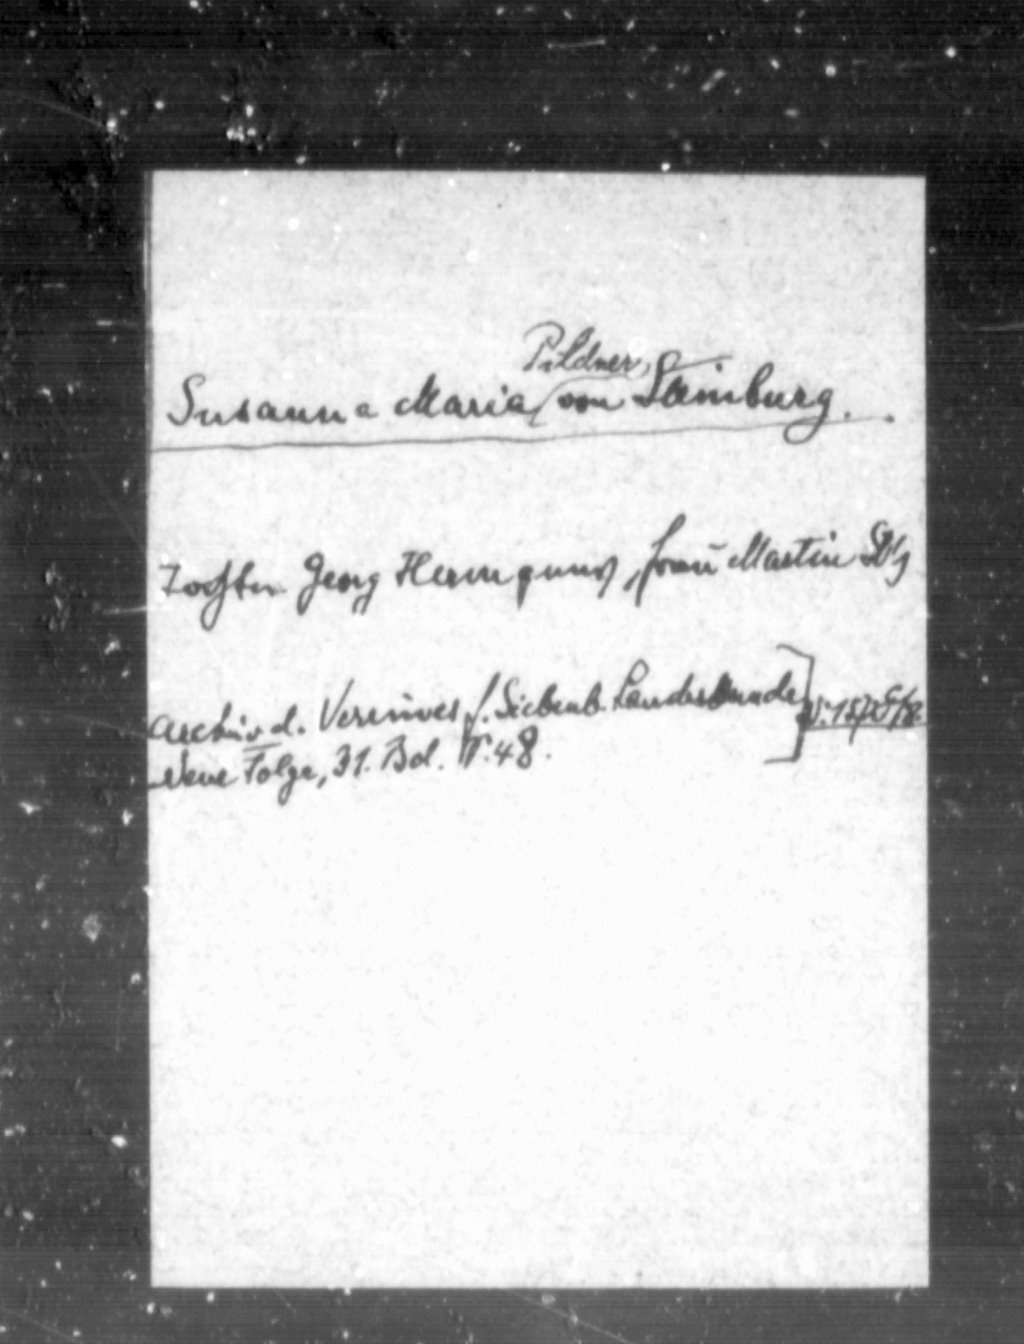 Pildner,
Susanna Maria von Steinburg.
Tochter Georg Herrmanns, Frau Martin
Archiv d. Vereines f. Siebenb. Landeskunde
Neue Folge, 31. Bd. P. 48.